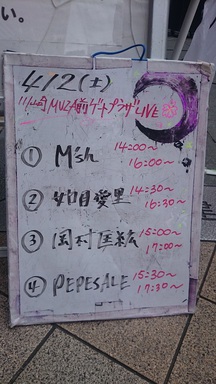 い。
4/2(土)
MUZA前ゲートプラザLIVE
① M'sh 14:00〜
16:00〜
② 愛里 14:30〜
16:30〜
③ 岡村 15:00〜
17:00〜
④ PEPESALE 15:30〜
17:30〜